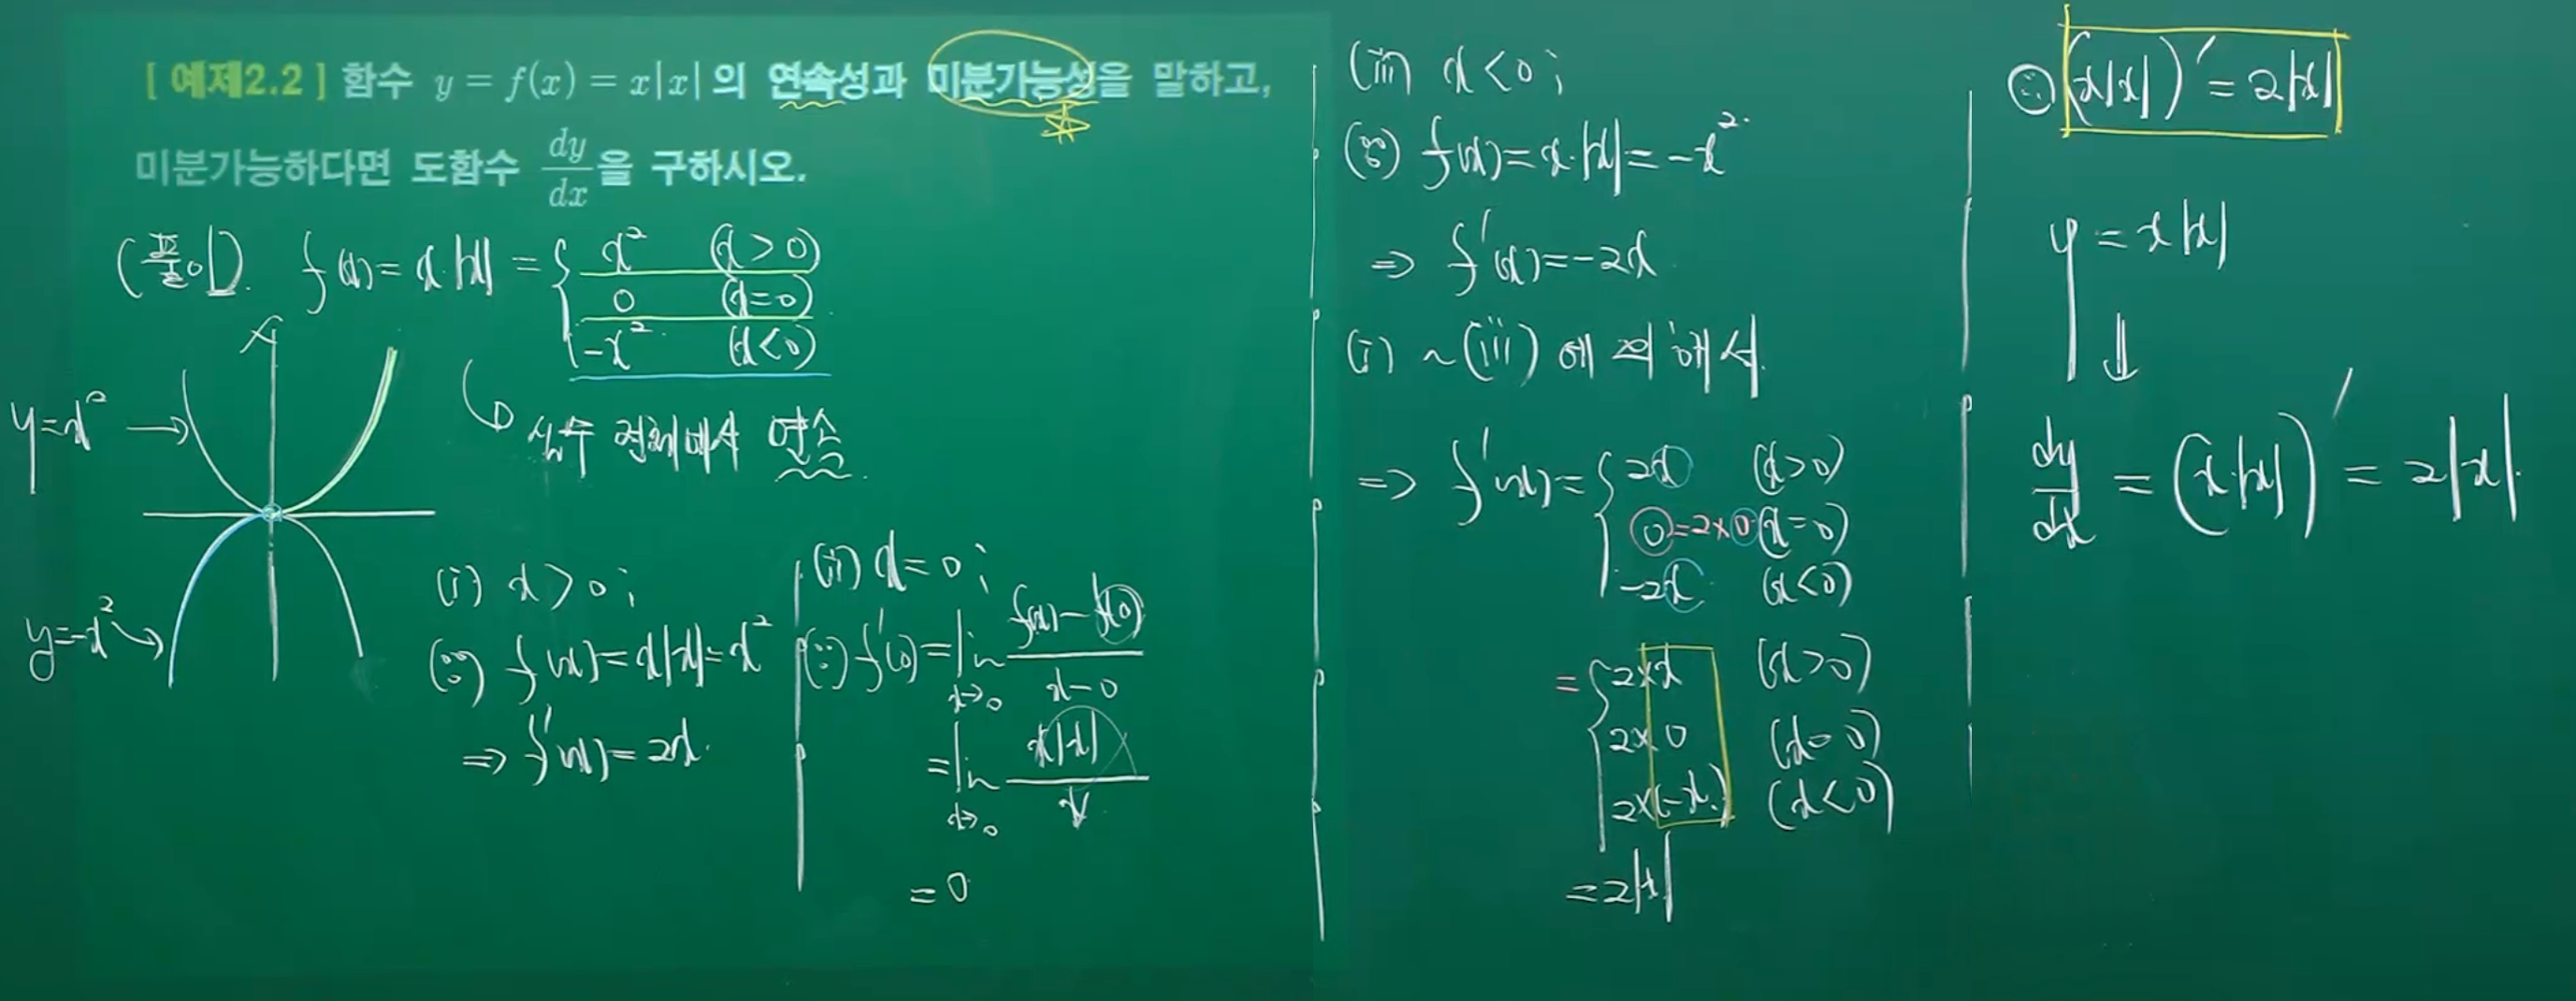 [ 예제2.2 ] 함수 y = f(x) = x|x| 의 연속성과 미분가능성을 말하고,
미분가능하다면 도함수 dy/dx 을 구하시오.
(풀이). f(x) = x·|x| = { x² (x>0)
0 (x=0)
-x² (x<0)
실수 전체에서 연속
y=x² →
y=-x² →
(i) x>0 ;
(∵) f(x)=x|x|=x²
⇒ f'(x)=2x.
(ii) x=0 ;
(∵) f'(0)= lim x→0 (f(x)-f(0))/(x-0)
= lim x→0 x|x|/x
= 0
(iii) x<0 ;
(∵) f(x)=x·|x|=-x²
⇒ f'(x)=-2x
(i) ~ (iii) 에 의해서
⇒ f'(x)= { 2x (x>0)
0=2×0 (x=0)
-2x (x<0)
= { 2×x (x>0)
2×0 (x=0)
2×(-x) (x<0)
=2|x|
∴ (x|x|)' = 2|x|
y = x|x|
↓
dy/dx = (x·|x|)' = 2|x|.